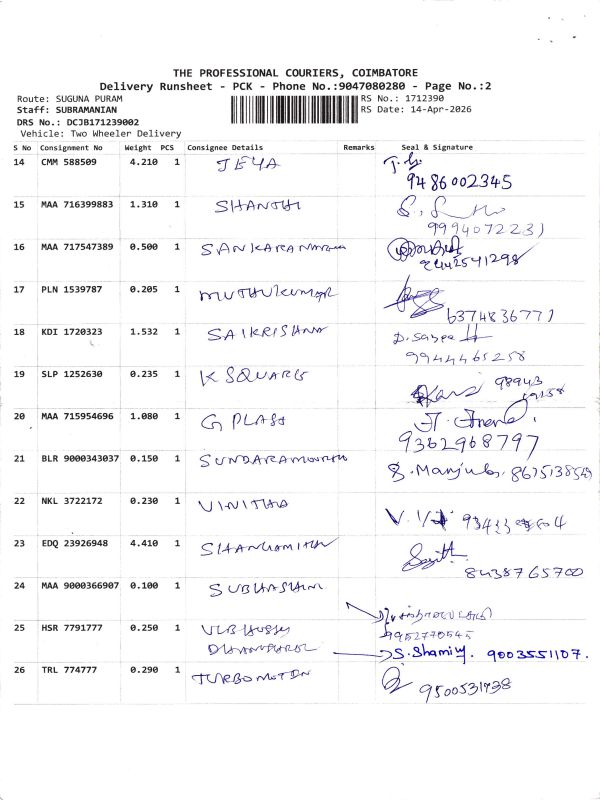 THE PROFESSIONAL COURIERS, COIMBATORE
Delivery Runsheet - PCK - Phone No.:9047080280 - Page No.:2
Route: SUGUNA PURAM RS No.: 1712390
Staff: SUBRAMANIAN RS Date: 14-Apr-2026
DRS No.: DCJB171239002
Vehicle: Two Wheeler Delivery
S No Consignment No Weight PCS Consignee Details Remarks Seal & Signature
14 CMM 588509 4.210 1 JEYA
9486002345
15 MAA 716399883 1.310 1 SHANTHI
9994072231
16 MAA 717547389 0.500 1
9442541298
17 PLN 1539787 0.205 1 MUTHUKUMAR
6374836771
18 KDI 1720323 1.532 1 SAIKRISHNA
9944465258
19 SLP 1252630 0.235 1 K SQUARE
98943
20 MAA 715954696 1.080 1 G PLAST
9362968797
21 BLR 9000343037 0.150 1 SUNDARAMOORTHI S. Manjula
22 NKL 3722172 0.230 1 VINITHA
23 EDQ 23926948 4.410 1
8438765700
24 MAA 9000366907 0.100 1 SUBHASHINI
25 HSR 7791777 0.250 1
9952770545
S. Shamily. 9003551107.
26 TRL 774777 0.290 1
9500531738